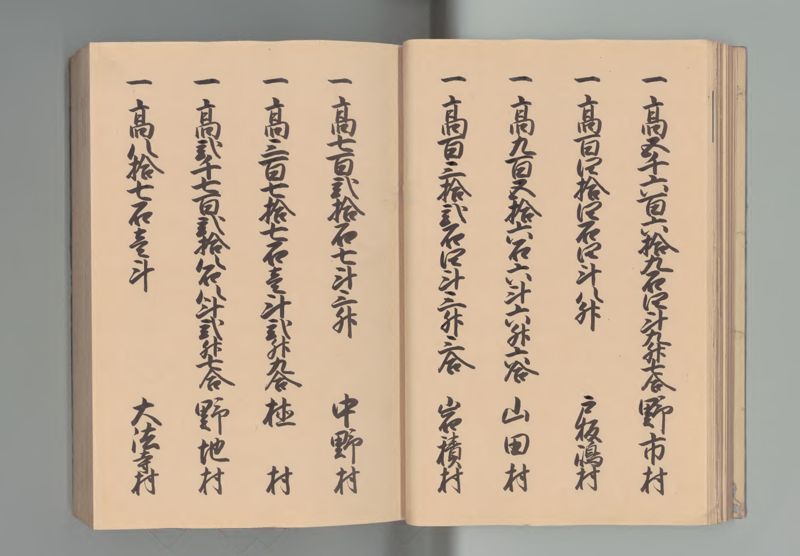 一高五千六百六拾九石四斗九升七合 野市村
一高百四拾四石四斗八升 戸板嶋村
一高九百五拾六石六斗六升六合 山田村
一高百三拾弐石四斗三升三合 岩積村
一高七百弐拾石七斗三升 中野村
一高三百七拾七石壱斗弐升九合 村
一高弐千七百弐拾八石八斗弐升七合 野地村
一高八拾七石壱斗 大法寺村